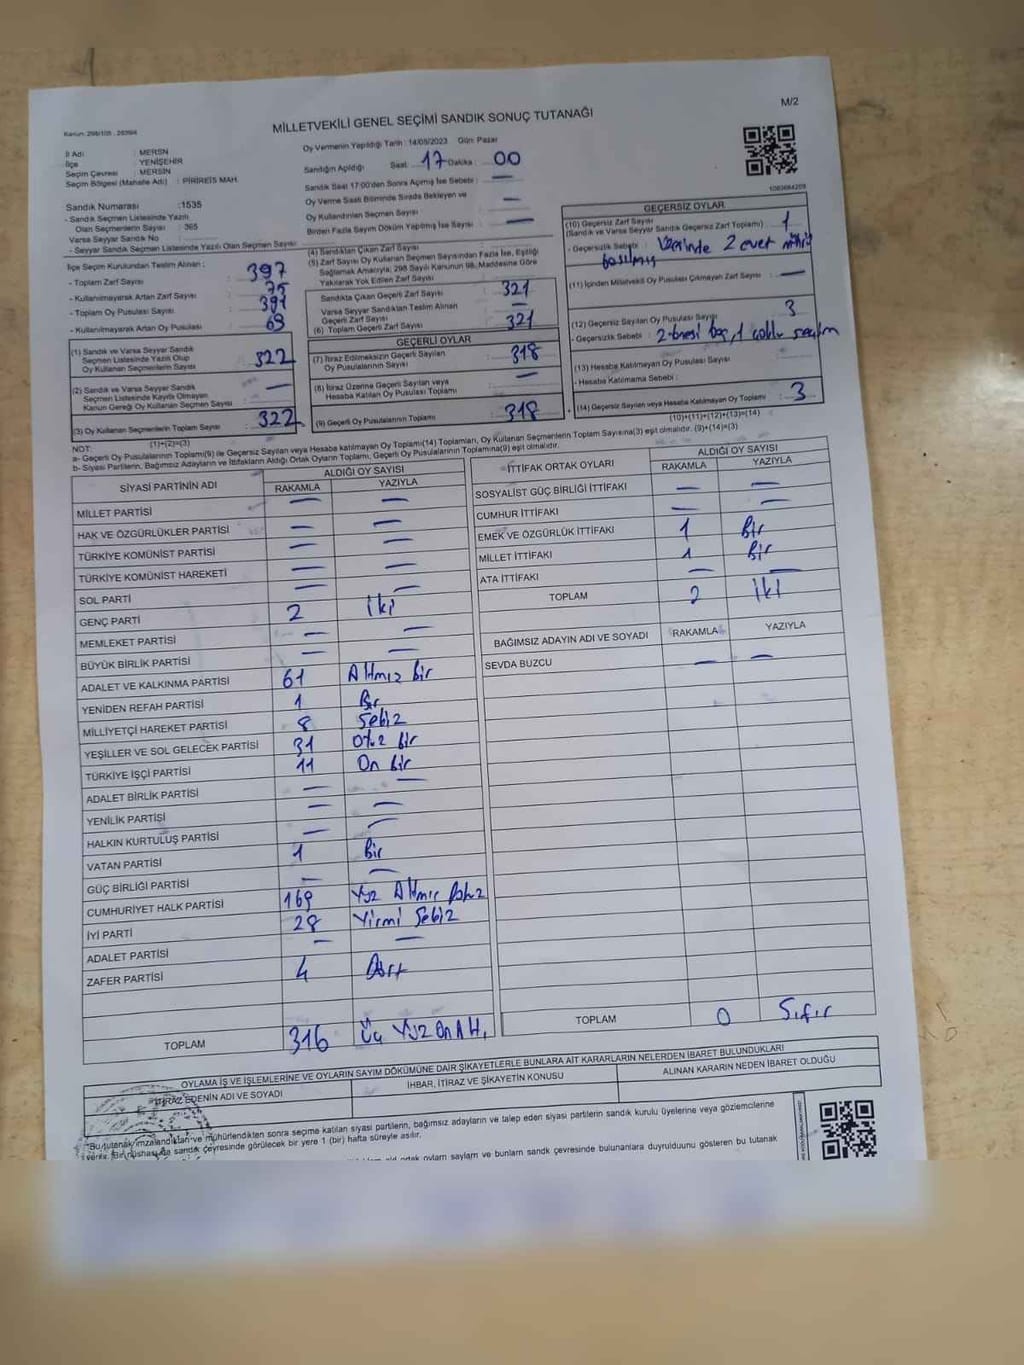 M/2
Kanun: 298/105 , 2839/4
MİLLETVEKİLİ GENEL SEÇİMİ SANDIK SONUÇ TUTANAĞI
İl Adı : MERSİN
İlçe : YENİŞEHİR
Seçim Çevresi : MERSİN
Seçim Bölgesi (Mahalle Adı) : PİRİREİS MAH.
Sandık Numarası :1535
- Sandık Seçmen Listesinde Yazılı
Olan Seçmenlerin Sayısı : 365
Varsa Seyyar Sandık No :
- Seyyar Sandık Seçmen Listesinde Yazılı Olan Seçmen Sayısı:
Oy Vermenin Yapıldığı Tarih : 14/05/2023 Gün: Pazar
Sandığın Açıldığı Saat: 17 Dakika : 00
Sandık Saat 17:00'den Sonra Açılmış İse Sebebi : —
Oy Verme Saati Bitiminde Sırada Bekleyen ve
Oy Kullandırılan Seçmen Sayısı —
Birden Fazla Sayım Döküm Yapılmış İse Sayısı : —
1083664209
İlçe Seçim Kurulundan Teslim Alınan ;
- Toplam Zarf Sayısı : 397
- Kullanılmayarak Artan Zarf Sayısı : 75
- Toplam Oy Pusulası Sayısı : 391
- Kullanılmayarak Artan Oy Pusulası : 69
(1) Sandık ve Varsa Seyyar Sandık
Seçmen Listesinde Yazılı Olup
Oy Kullanan Seçmenlerin Sayısı : 322
(2) Sandık ve Varsa Seyyar Sandık
Seçmen Listesinde Kayıtlı Olmayan
Kanun Gereği Oy Kullanan Seçmen Sayısı : —
(3) Oy Kullanan Seçmenlerin Toplam Sayısı : 322
(1)+(2)=(3)
(4) Sandıktan Çıkan Zarf Sayısı
(5) Zarf Sayısı Oy Kullanan Seçmen Sayısından Fazla İse, Eşitliği
Sağlamak Amacıyla; 298 Sayılı Kanunun 98. Maddesine Göre
Yakılarak Yok Edilen Zarf Sayısı
Sandıkta Çıkan Geçerli Zarf Sayısı : 321
Varsa Seyyar Sandıktan Teslim Alınan
Geçerli Zarf Sayısı : —
(6) Toplam Geçerli Zarf Sayısı : 321
GEÇERLİ OYLAR
(7) İtiraz Edilmeksizin Geçerli Sayılan
Oy Pusulalarının Sayısı : 318
(8) İtiraz Üzerine Geçerli Sayılan veya
Hesaba Katılan Oy Pusulası Toplamı : —
(9) Geçerli Oy Pusulalarının Toplamı : 318
GEÇERSİZ OYLAR
(10) Geçersiz Zarf Sayısı
(Sandık ve Varsa Seyyar Sandık Geçersiz Zarf Toplamı) : 1
- Geçersizlik Sebebi : Üzerinde 2 evet mührü
basılmış
(11) İçinden Milletvekili Oy Pusulası Çıkmayan Zarf Sayısı : —
(12) Geçersiz Sayılan Oy Pusulası Sayısı : 3
- Geçersizlik Sebebi : 2 tanesi boş, 1 çoklu seçim
(13) Hesaba Katılmayan Oy Pusulası Sayısı
- Hesaba Katılmama Sebebi :
(14) Geçersiz Sayılan veya Hesaba Katılmayan Oy Toplamı : 3
(10)+(11)+(12)+(13)=(14)
NOT:
a- Geçerli Oy Pusulalarının Toplamı(9) ile Geçersiz Sayılan veya Hesaba katılmayan Oy Toplamı(14) Toplamları, Oy Kullanan Seçmenlerin Toplam Sayısına(3) eşit olmalıdır. (9)+(14)=(3)
b- Siyasi Partilerin, Bağımsız Adayların ve İttifakların Aldığı Ortak Oyların Toplamı, Geçerli Oy Pusulalarının Toplamına(9) eşit olmalıdır.
SİYASİ PARTİNİN ADI ALDIĞI OY SAYISI
RAKAMLA YAZIYLA
MİLLET PARTİSİ — —
HAK VE ÖZGÜRLÜKLER PARTİSİ — —
TÜRKİYE KOMÜNİST PARTİSİ — —
TÜRKİYE KOMÜNİST HAREKETİ — —
SOL PARTİ — —
GENÇ PARTİ 2 iki
MEMLEKET PARTİSİ — —
BÜYÜK BİRLİK PARTİSİ — —
ADALET VE KALKINMA PARTİSİ 61 Altmış bir
YENİDEN REFAH PARTİSİ 1 Bir
MİLLİYETÇİ HAREKET PARTİSİ 8 Sekiz
YEŞİLLER VE SOL GELECEK PARTİSİ 31 Otuz bir
TÜRKİYE İŞÇİ PARTİSİ 11 On bir
ADALET BİRLİK PARTİSİ — —
YENİLİK PARTİSİ — —
HALKIN KURTULUŞ PARTİSİ — —
VATAN PARTİSİ 1 Bir
GÜÇ BİRLİĞİ PARTİSİ — —
CUMHURİYET HALK PARTİSİ 169 Yüz Altmış Dokuz
İYİ PARTİ 28 Yirmi Sekiz
ADALET PARTİSİ — —
ZAFER PARTİSİ 4 Dört
TOPLAM 316 Üç Yüz On Altı
İTTİFAK ORTAK OYLARI ALDIĞI OY SAYISI
RAKAMLA YAZIYLA
SOSYALİST GÜÇ BİRLİĞİ İTTİFAKI — —
CUMHUR İTTİFAKI — —
EMEK VE ÖZGÜRLÜK İTTİFAKI 1 Bir
MİLLET İTTİFAKI 1 Bir
ATA İTTİFAKI — —
TOPLAM 2 İki
BAĞIMSIZ ADAYIN ADI VE SOYADI RAKAMLA YAZIYLA
SEVDA BUZCU — —
TOPLAM 0 Sıfır
OYLAMA İŞ VE İŞLEMLERİNE VE OYLARIN SAYIM DÖKÜMÜNE DAİR ŞİKAYETLERLE BUNLARA AİT KARARLARIN NELERDEN İBARET BULUNDUKLARI
İTİRAZ EDENİN ADI VE SOYADI İHBAR, İTİRAZ VE ŞİKAYETİN KONUSU ALINAN KARARIN NEDEN İBARET OLDUĞU
"Bu tutanak imzalandıktan ve mühürlendikten sonra seçime katılan siyasi partilerin, bağımsız adayların ve talep eden siyasi partilerin sandık kurulu üyelerine veya gözlemcilerine
verilir. Bir nüshası da sandık çevresinde görülecek bir yere 1 (bir) hafta süreyle asılır.
ortak oyların sayısını ve bunların sandık çevresinde bulunanlara duyurulduunu gösteren bu tutanak